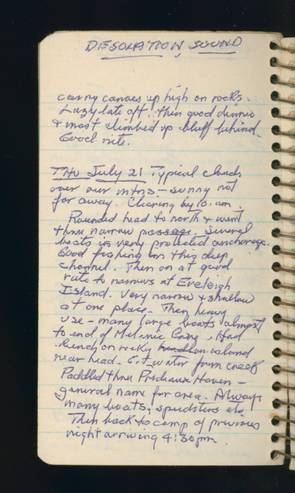 DESOLATION SOUND
carry canoes up high on rocks.
Lazy late aft. then good dinner
& most climbed up bluff behind.
Good nite.
THU July 21 Typical clouds
over our mtns - sunny not
far away. Clearing by 10. am.
Rounded head to north & went
thru narrow passage. Several
boats in very protected anchorage.
Good fishing in this deep
channel. Then on at good
rate to narrows at Eveleigh
Island. Very narrow & shallow
at one place. Then heavy
use - many large boats almost
to end of Melanie Cove. Had
lunch on rocky island
near head. Got water from creek
Paddled thru Prideaux Haven -
general name for area. Always
many boats, speedsters etc.
Then back to camp of previous
night arriving 4:30 pm.